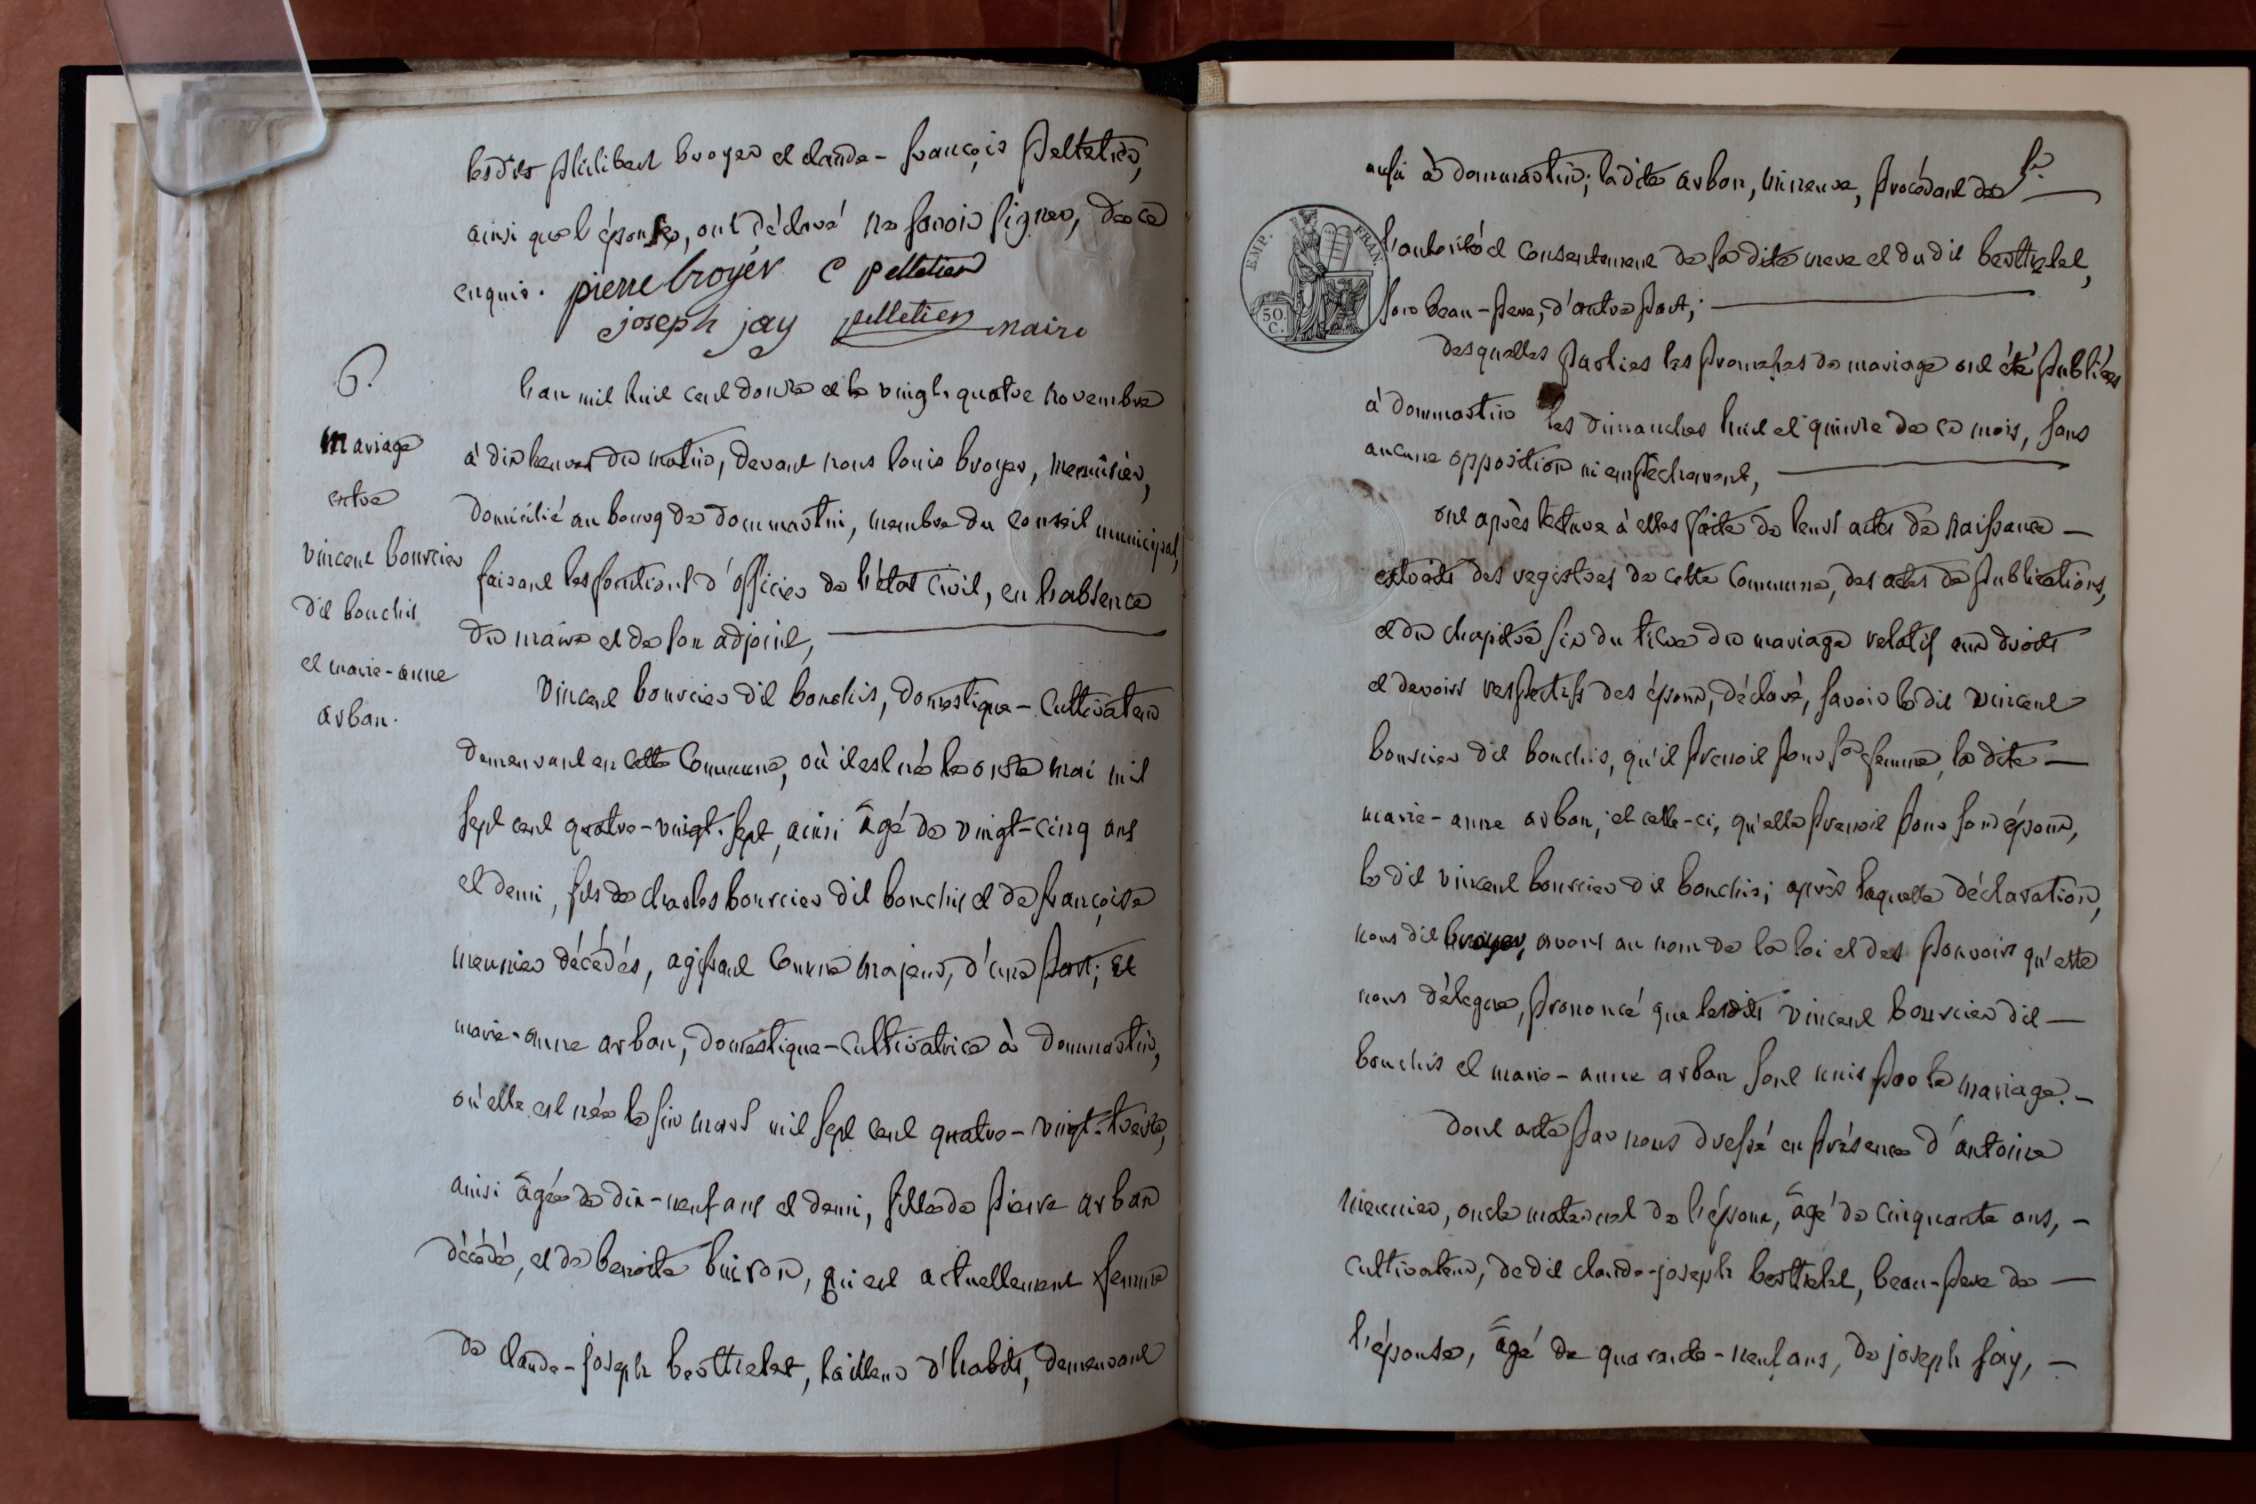 lesdits philibert broyer et claude-françois pelletier,
ainsi que l'épouse, ont déclaré ne savoir signer, de ce
enquis. pierre broyer C pelletier
joseph jay pelletier maire
6.
mariage
entre
vincent bourcier
dit bouchis
et marie-anne
arban.
l'an mil huit cent douze et le vingt quatre novembre
à dix heures du matin, devant nous louis broyer, menuisier,
domicilié au bourg de dommartin, membre du conseil municipal,
faisant les fonctions d'officier de l'état civil, en l'absence
du maire et de son adjoint,
Vincent bourcier dit bouchis, domestique-cultivateur
demeurant en cette commune, où il est né le onze mai mil
sept cent quatre-vingt-sept, ainsi âgé de vingt-cinq ans
et demi, fils de charles bourcier dit bouchis et de françoise
meunier décédés, agissant comme majeur, d'une part; et
marie-anne arban, domestique-cultivatrice à dommartin,
où elle est née le six mars mil sept cent quatre-vingt-treize,
ainsi âgée de dix-neuf ans et demi, fille de pierre arban
décédé, et de benoite buiron, qui est actuellement femme
de claude-joseph berthelet, tailleur d'habits, demeurant
aussi à dommartin; ladite arban, mineure, procédant de
EMP. FRAN.
50 C.
l'autorité et consentement de sa dite mere et du dit berthelet,
son beau-pere, d'autre part;
desquelles parties les promesses de mariage ont été publiées
à dommartin les dimanches huit et quinze de ce mois, sans
aucune opposition ni empêchement,
ont après lecture à elles faite de leurs actes de naissance
extraits des registres de cette commune, des actes de publications,
et du chapitre six du titre du mariage relatif aux droits
et devoirs respectifs des époux, déclaré, savoir le dit vincent
bourcier dit bouchis, qu'il prenoit pour sa femme, la dite
marie-anne arban; et celle-ci, qu'elle prenoit pour son époux,
le dit vincent bourcier dit bouchis; après laquelle déclaration,
nous dit broyer, avons au nom de la loi et des pouvoirs qu'elle
nous délegue, prononcé que lesdits vincent bourcier dit
bouchis et marie-anne arban sont unis par le mariage.
dont acte par nous dressé en présence d'antoine
meunier, oncle maternel de l'époux, âgé de cinquante ans,
cultivateur, dedit claude-joseph berthelet, beau-pere de
l'épouse, âgé de quarante-neuf ans, de joseph jay,